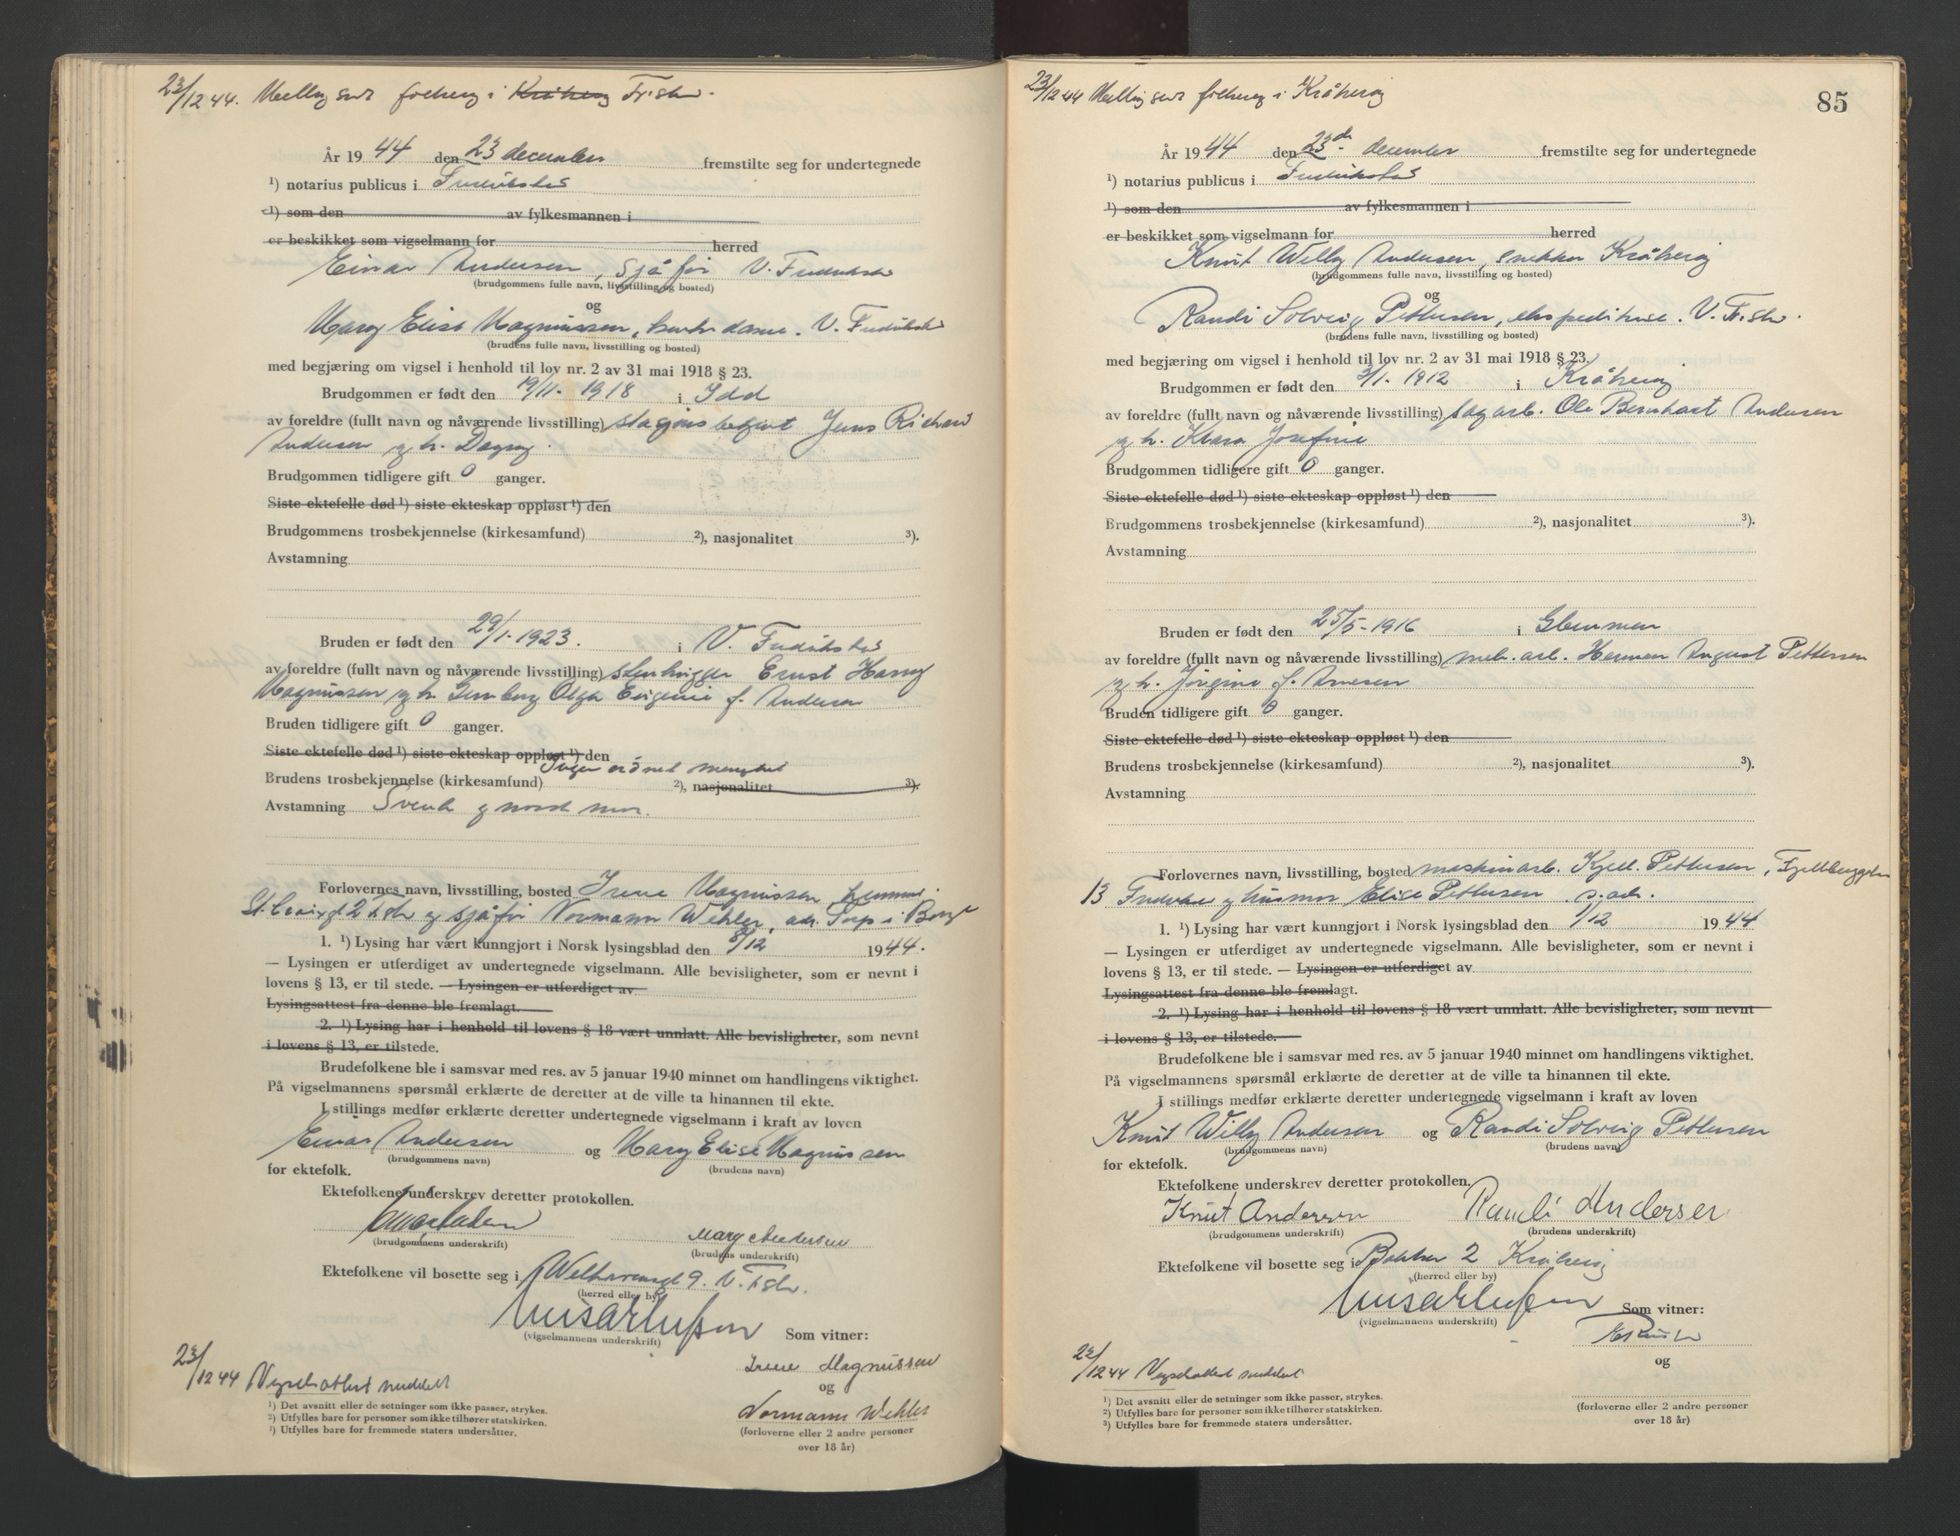 23/12 44. Melding sendt folkereg i Kråkerøy Fr.stad.
År 1944 den 23 december fremstilte seg for undertegnede
¹) notarius publicus i Fredrikstad
¹) som den av fylkesmannen i
er beskikket som vigselmann for herred
Einar Andersen, sjåfør V. Fredrikstad
(brudgommens fulle navn, livsstilling og bosted)
og
Mary Elise Magnussen, kontordame. V. Fredrikstad
(brudens fulle navn, livsstilling og bosted)
med begjæring om vigsel i henhold til lov nr. 2 av 31 mai 1918 § 23.
Brudgommen er født den 19/11-1918 i Idd
av foreldre (fullt navn og nåværende livsstilling) stasjonsbetjent Jens Richard
Andersen og h. Dagny.
Brudgommen tidligere gift 0 ganger.
Siste ektefelle død ¹) siste ekteskap oppløst ¹) den
Brudgommens trosbekjennelse (kirkesamfund) ²), nasjonalitet ³).
Avstamning
Bruden er født den 29/1-1923. i V. Fredrikstad
av foreldre (fullt navn og nåværende livsstilling) stenhugger Ernst Harry
Magnussen og h. Olga Eugenie f. Andersen
Bruden tidligere gift 0 ganger.
Siste ektefelle død ¹) siste ekteskap oppløst ¹) den
Brudens trosbekjennelse (kirkesamfund) Ingen ordnet menighet ²), nasjonalitet ³).
Avstamning Svensk og norsk mor.
Forlovernes navn, livsstilling, bosted Irene Magnussen hjemme.
St. Croixgt 2 F.stad og sjåfør Normann Wehler, adr. Torp i Borge
1. ¹) Lysing har vært kunngjort i Norsk lysingsblad den 8/12 1944.
— Lysingen er utferdiget av undertegnede vigselmann. Alle bevisligheter, som er nevnt i
lovens § 13, er til stede. — Lysingen er utferdiget av
Lysingsattest fra denne ble fremlagt.
2. ¹) Lysing har i henhold til lovens § 18 vært unnlatt. Alle bevisligheter, som nevnt
i lovens § 13, er tilstede.
Brudefolkene ble i samsvar med res. av 5 januar 1940 minnet om handlingens viktighet.
På vigselmannens spørsmål erklærte de deretter at de ville ta hinannen til ekte.
I stillings medfør erklærte deretter undertegnede vigselmann i kraft av loven
Einar Andersen og Mary Elise Magnussen
(brudgommens navn) (brudens navn)
for ektefolk.
Ektefolkene underskrev deretter protokollen.
Einar Andersen Mary Andersen
(brudgommens underskrift) (brudens underskrift)
Ektefolkene vil bosette seg i Welhavensgt 9. V. F.stad.
(herred eller by)
(vigselmannens underskrift) Som vitner:
23/12 44 Vigselsattest meddelt
Irene Magnussen
og
Normann Wehler
(forloverne eller 2 andre personer
over 18 år)
¹) Det avsnitt eller de setninger som ikke passer, strykes.
²) Utfylles bare for personer som ikke tilhører statskirken.
³) Utfylles bare for fremmede staters undersåtter.
85
23/12 44 Melding sendt folkereg i Kråkerøy
År 1944 den 23de december fremstilte seg for undertegnede
¹) notarius publicus i Fredrikstad
¹) som den av fylkesmannen i
er beskikket som vigselmann for herred
Knut Willy Andersen, snekker Kråkerøy
(brudgommens fulle navn, livsstilling og bosted)
og
Randi Solveig Pettersen, ekspeditrise. V. Fr.stad.
(brudens fulle navn, livsstilling og bosted)
med begjæring om vigsel i henhold til lov nr. 2 av 31 mai 1918 § 23.
Brudgommen er født den 3/1-1912 i Kråkerøy
av foreldre (fullt navn og nåværende livsstilling) sagarb. Ole Bernhart Andersen
og h. Klara Josefine
Brudgommen tidligere gift 0 ganger.
Siste ektefelle død ¹) siste ekteskap oppløst ¹) den
Brudgommens trosbekjennelse (kirkesamfund) ²), nasjonalitet ³).
Avstamning
Bruden er født den 25/5-1916 i Glemmen
av foreldre (fullt navn og nåværende livsstilling) mek. arb. Herman August Pettersen
og h. Jørgine f. Arnesen
Bruden tidligere gift 0 ganger.
Siste ektefelle død ¹) siste ekteskap oppløst ¹) den
Brudens trosbekjennelse (kirkesamfund) ²), nasjonalitet ³).
Avstamning
Forlovernes navn, livsstilling, bosted maskinarb. Kjell Pettersen, Fjellberggaten
13 og husmor Elise Pettersen s. adr.
1. ¹) Lysing har vært kunngjort i Norsk lysingsblad den 1/12 1944
— Lysingen er utferdiget av undertegnede vigselmann. Alle bevisligheter, som er nevnt i
lovens § 13, er til stede. — Lysingen er utferdiget av
Lysingsattest fra denne ble fremlagt.
2. ¹) Lysing har i henhold til lovens § 18 vært unnlatt. Alle bevisligheter, som nevnt
i lovens § 13, er tilstede.
Brudefolkene ble i samsvar med res. av 5 januar 1940 minnet om handlingens viktighet.
På vigselmannens spørsmål erklærte de deretter at de ville ta hinannen til ekte.
I stillings medfør erklærte deretter undertegnede vigselmann i kraft av loven
Knut Willy Andersen og Randi Solveig Pettersen
(brudgommens navn) (brudens navn)
for ektefolk.
Ektefolkene underskrev deretter protokollen.
Knut Andersen Randi Andersen
(brudgommens underskrift) (brudens underskrift)
Ektefolkene vil bosette seg i Bakken 2 Kråkerøy
(herred eller by)
(vigselmannens underskrift) Som vitner:
og
23/12 44 Vigselsattest meddelt
¹) Det avsnitt eller de setninger som ikke passer, strykes.
²) Utfylles bare for personer som ikke tilhører statskirken.
³) Utfylles bare for fremmede staters undersåtter.
(forloverne eller 2 andre personer
over 18 år)